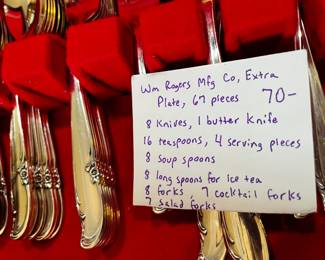 Wm Rogers Mfg Co, Extra
Plate, 67 pieces 70-
8 Knives, 1 butter Knife
16 teaspoons, 4 serving pieces
8 soup spoons
8 long spoons for ice tea
8 forks, 7 cocktail forks
7 salad forks